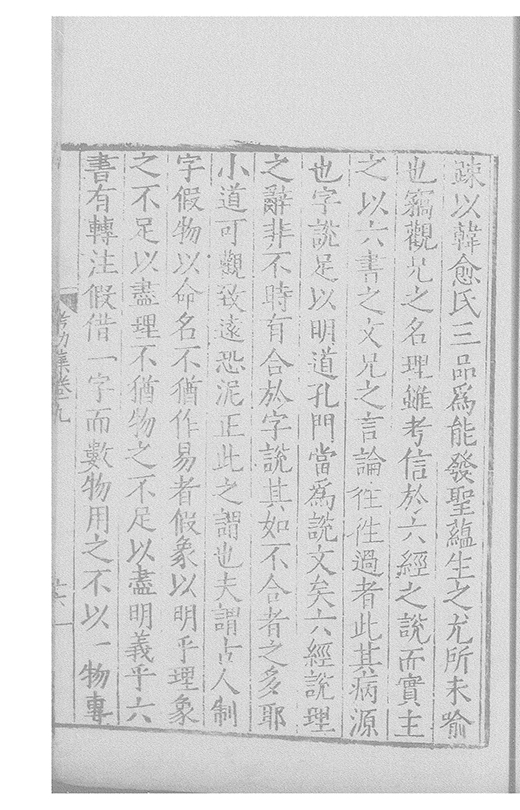 疎以韓愈氏三品爲能發聖蘊生之尤所未喻
也竊觀兄之名理雖考信於六經之說而實主
之以六書之文兄之言論往往過者此其病源
也字說足以明道孔門當爲說文矣六經說理
之辭非不時有合於字說其如不合者之多耶
小道可觀致遠恐泥正此之謂也夫謂古人制
字假物以命名不猶作易者假象以明乎理象
之不足以盡理不猶物之不足以盡明義乎六
書有轉注假借一字而數物用之不以一物專
考功集卷九